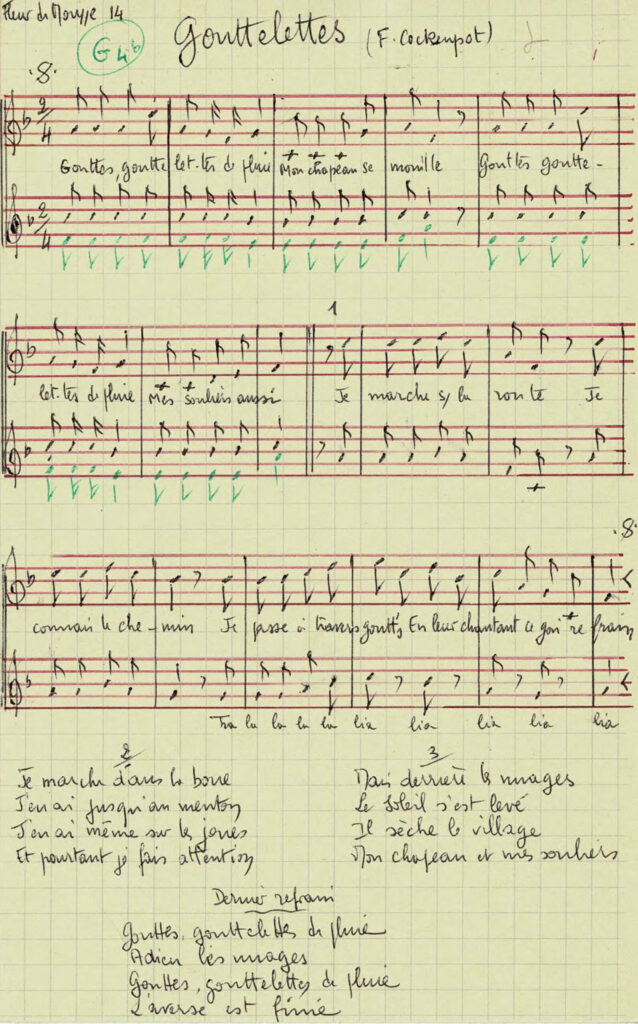 Fleur de Mousse 14
G 4b
Gouttelettes (F. Cockenpot)
8
2 4
Gouttes, goutte let-tes de pluie Mon chapeau se mouille Gouttes goutte-
2 4
1
let-tes de pluie Mes souliers aussi Je marche s/ la route Je
8
connais le che-min Je passe à travers gouttes En leur chantant ce gai re frain
Tra la la la la lia lia lia lia lia
2
Je marche dans la boue
J'en ai jusqu'au menton
J'en ai même sur les joues
Et pourtant je fais attention
3
Mais derrière les nuages
Le Soleil s'est levé
Il sèche le village
Mon chapeau et mes souliers
Dernier refrain
Gouttes, gouttelettes de pluie
Adieu les nuages
Gouttes, gouttelettes de pluie
L'averse est finie